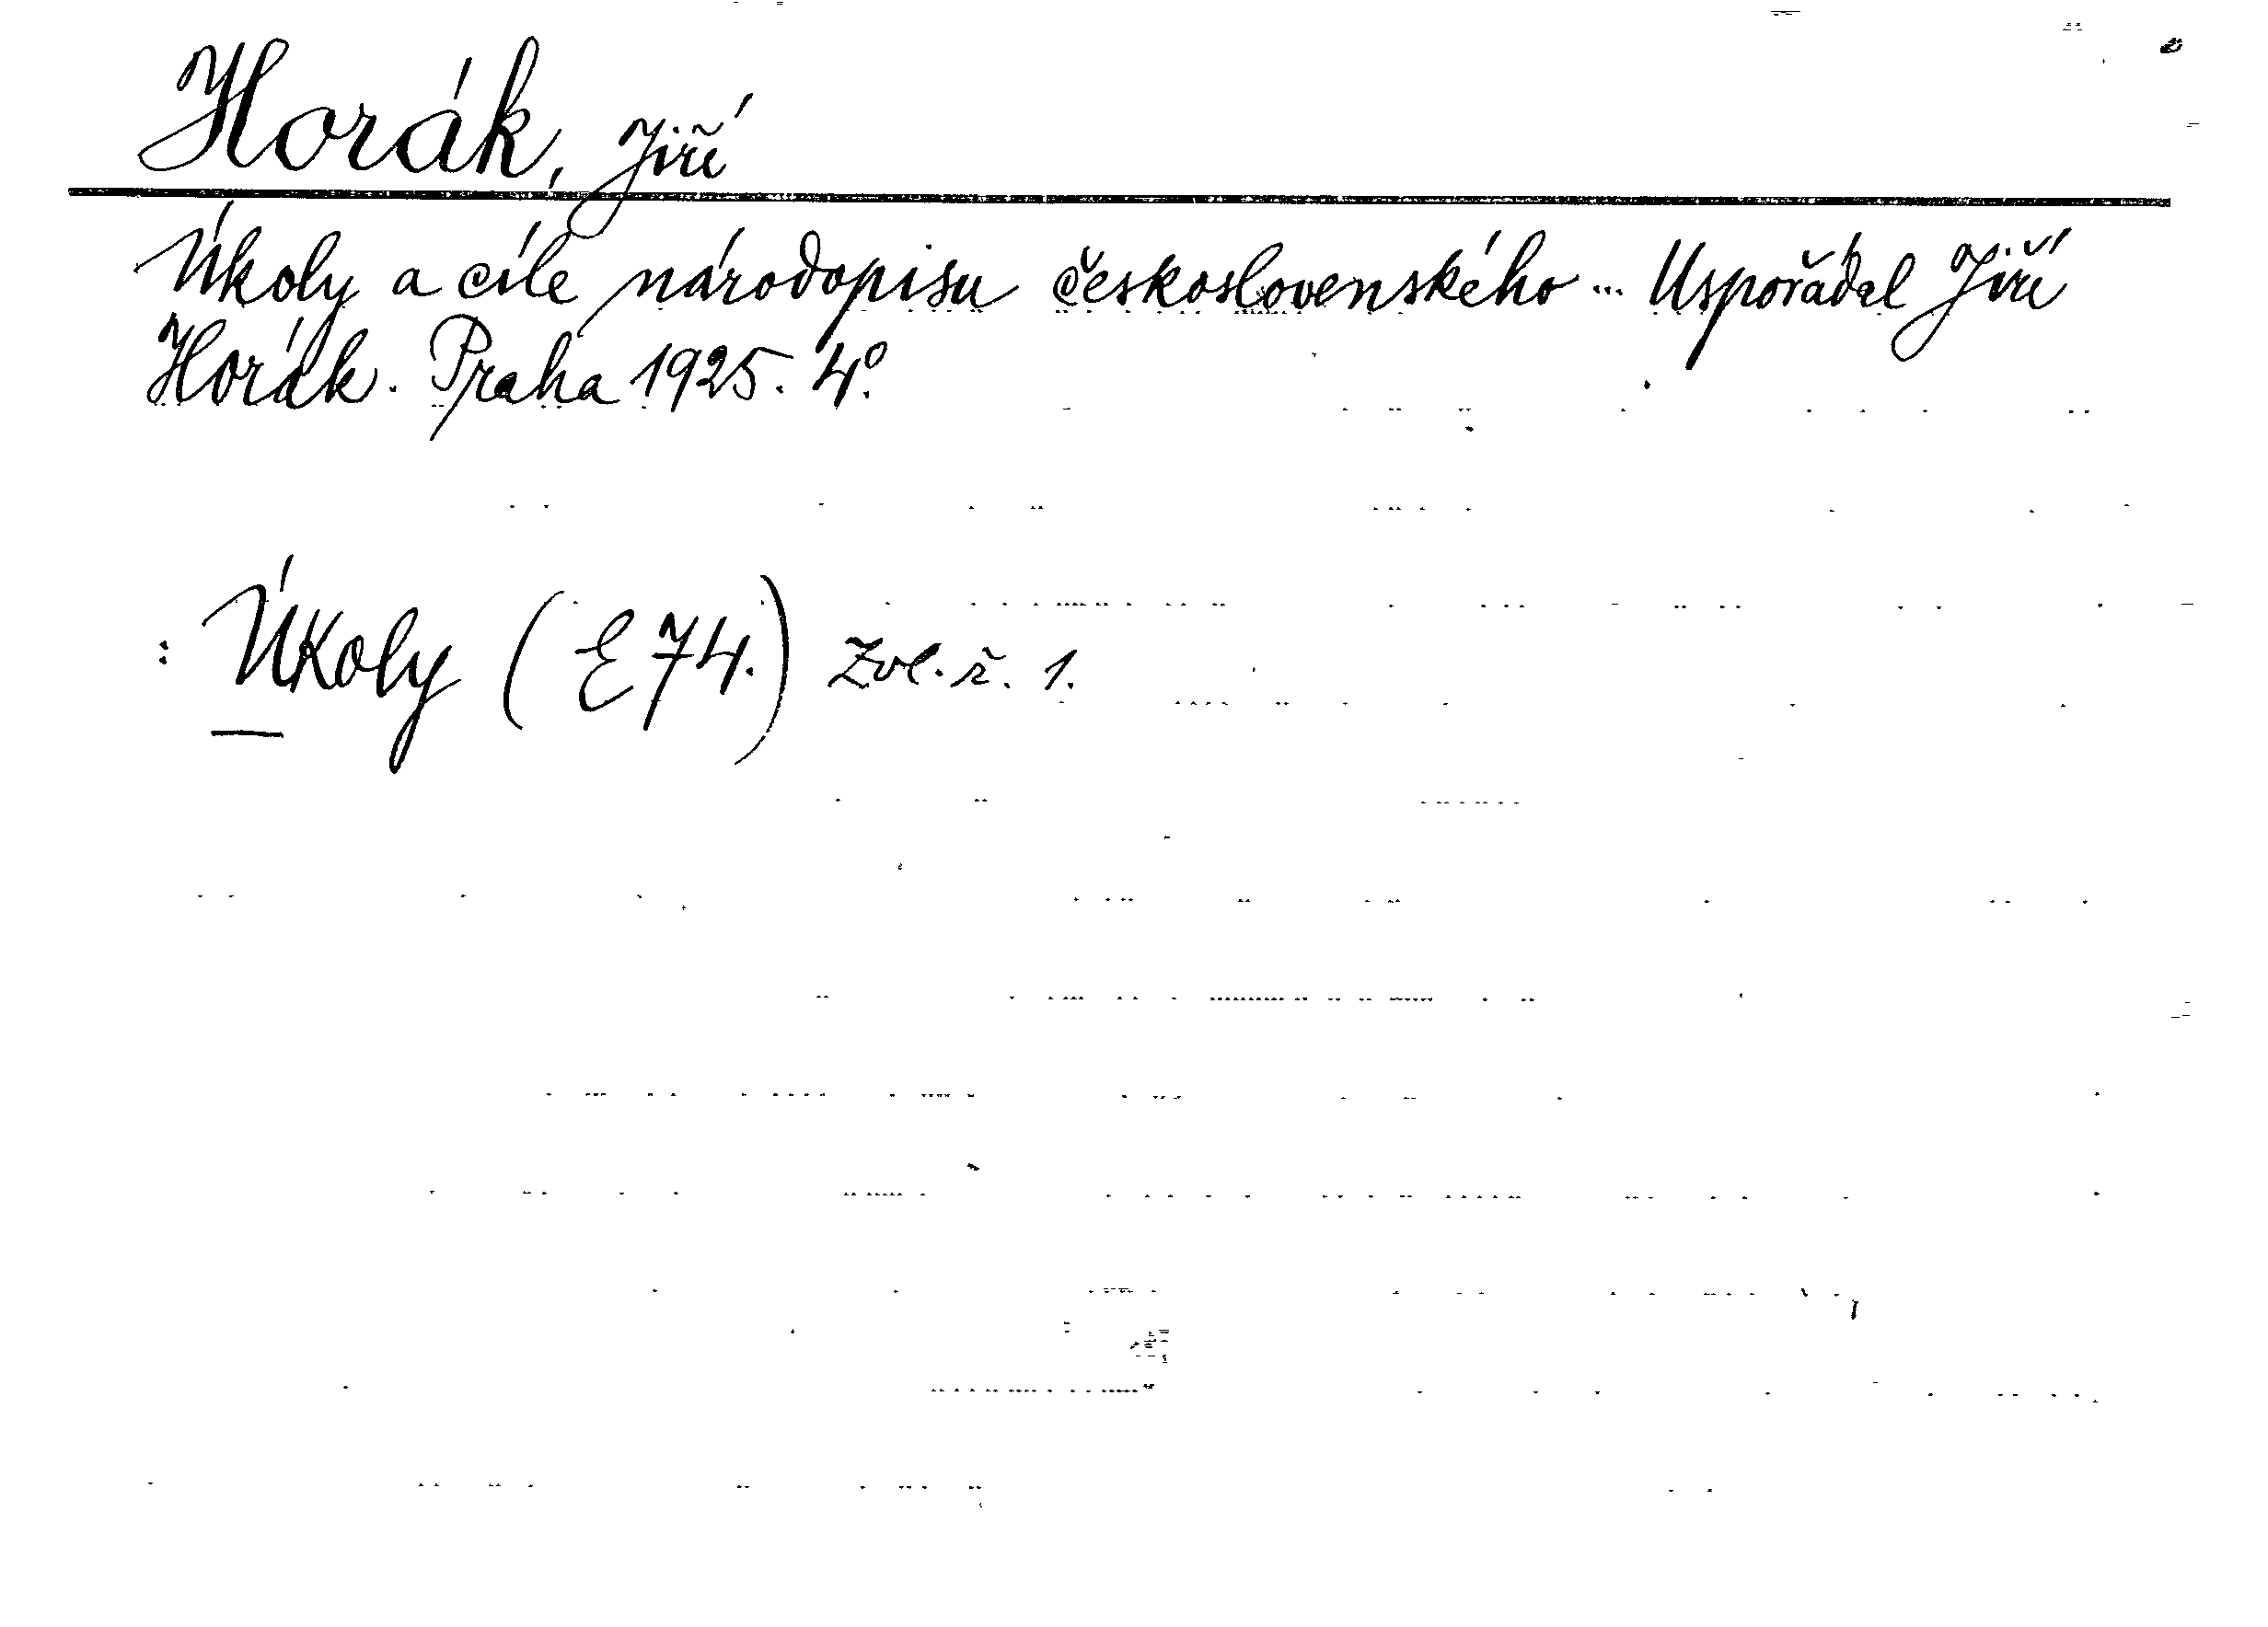 Horák, Jiří
Úkoly a cíle národopisu československého ... Uspořádal Jiří
Horák. Praha 1925. 4°.
: Úkoly (E 74.) Zvl. ř. 1.